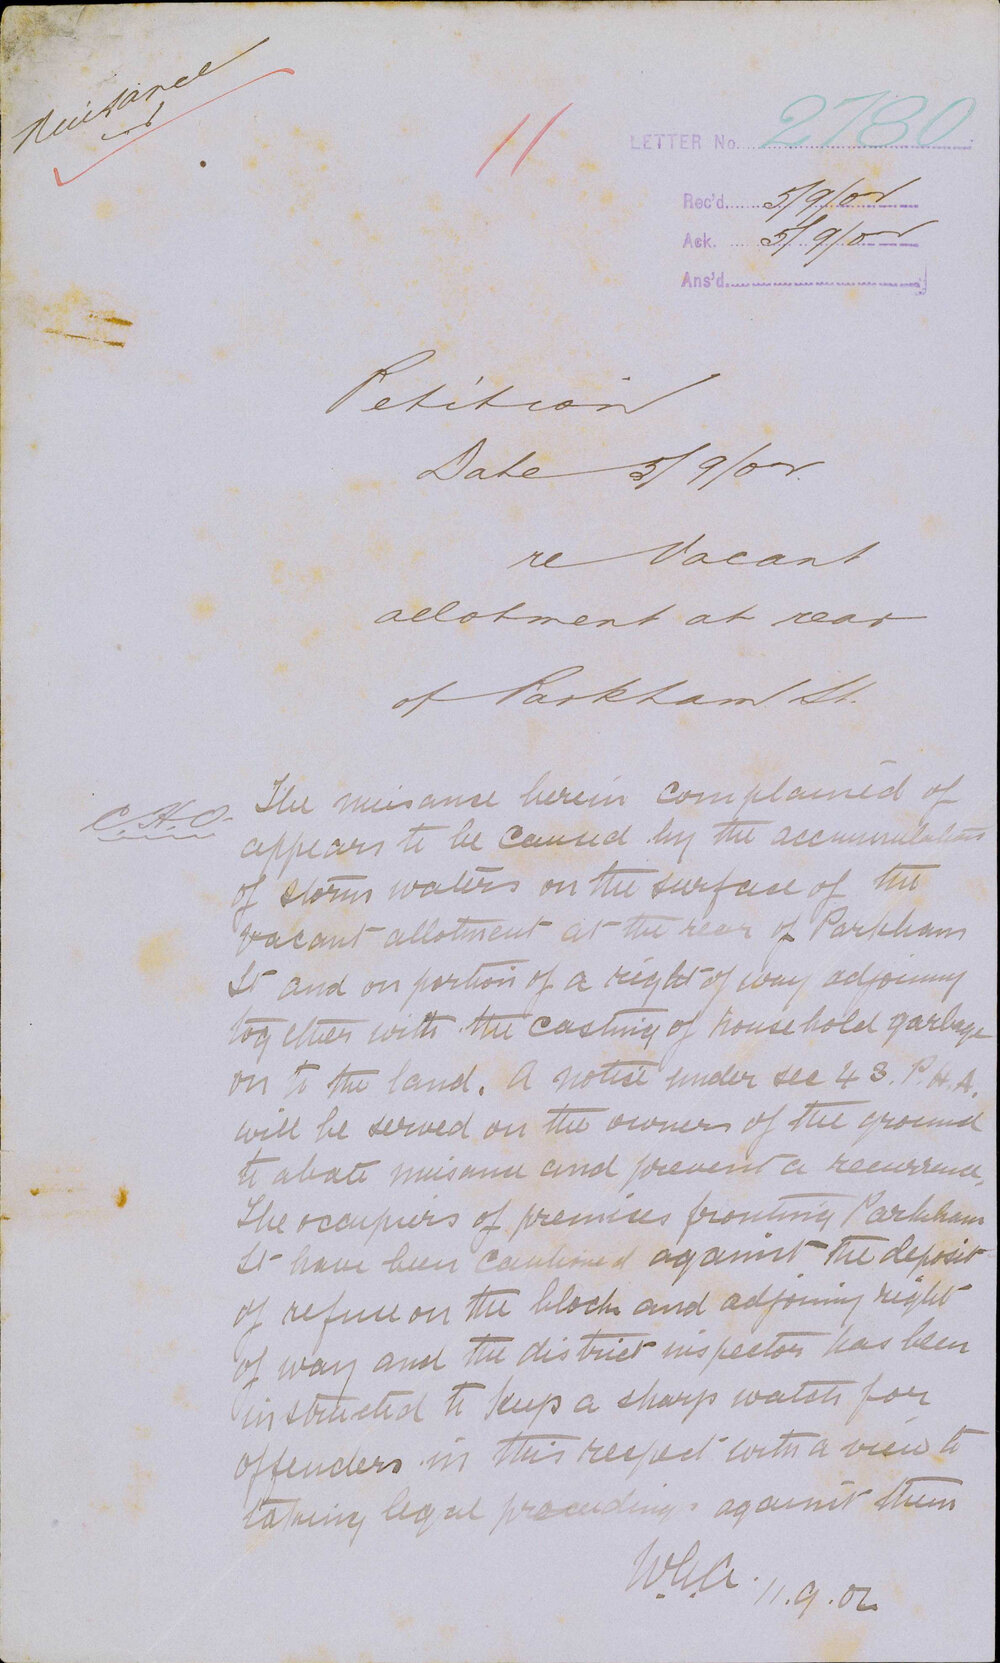 Nuisance
11
LETTER No. 2780
Rec'd. 5/9/02
Ack. 5/9/02
Ans'd.
Petition
Date 5/9/02.
re Vacant
allotment at rear
of Parkham St.
C.H.O.
The nuisance herein complained of
appears to be caused by the accumulation
of storm waters on the surface of the
vacant allotment at the rear of Parkham
St and on portion of a right of way adjoining
together with the casting of household garbage
on to the land. A notice under sec 43. P.H.A.
will be served on the owners of the ground
to abate nuisance and prevent a recurrence.
The occupiers of premises fronting Parkham
St have been cautioned against the deposit
of refuse on the block and adjoining right
of way and the district inspector has been
instructed to keep a sharp watch for
offenders in this respect with a view to
taking legal proceedings against them
11.9.02